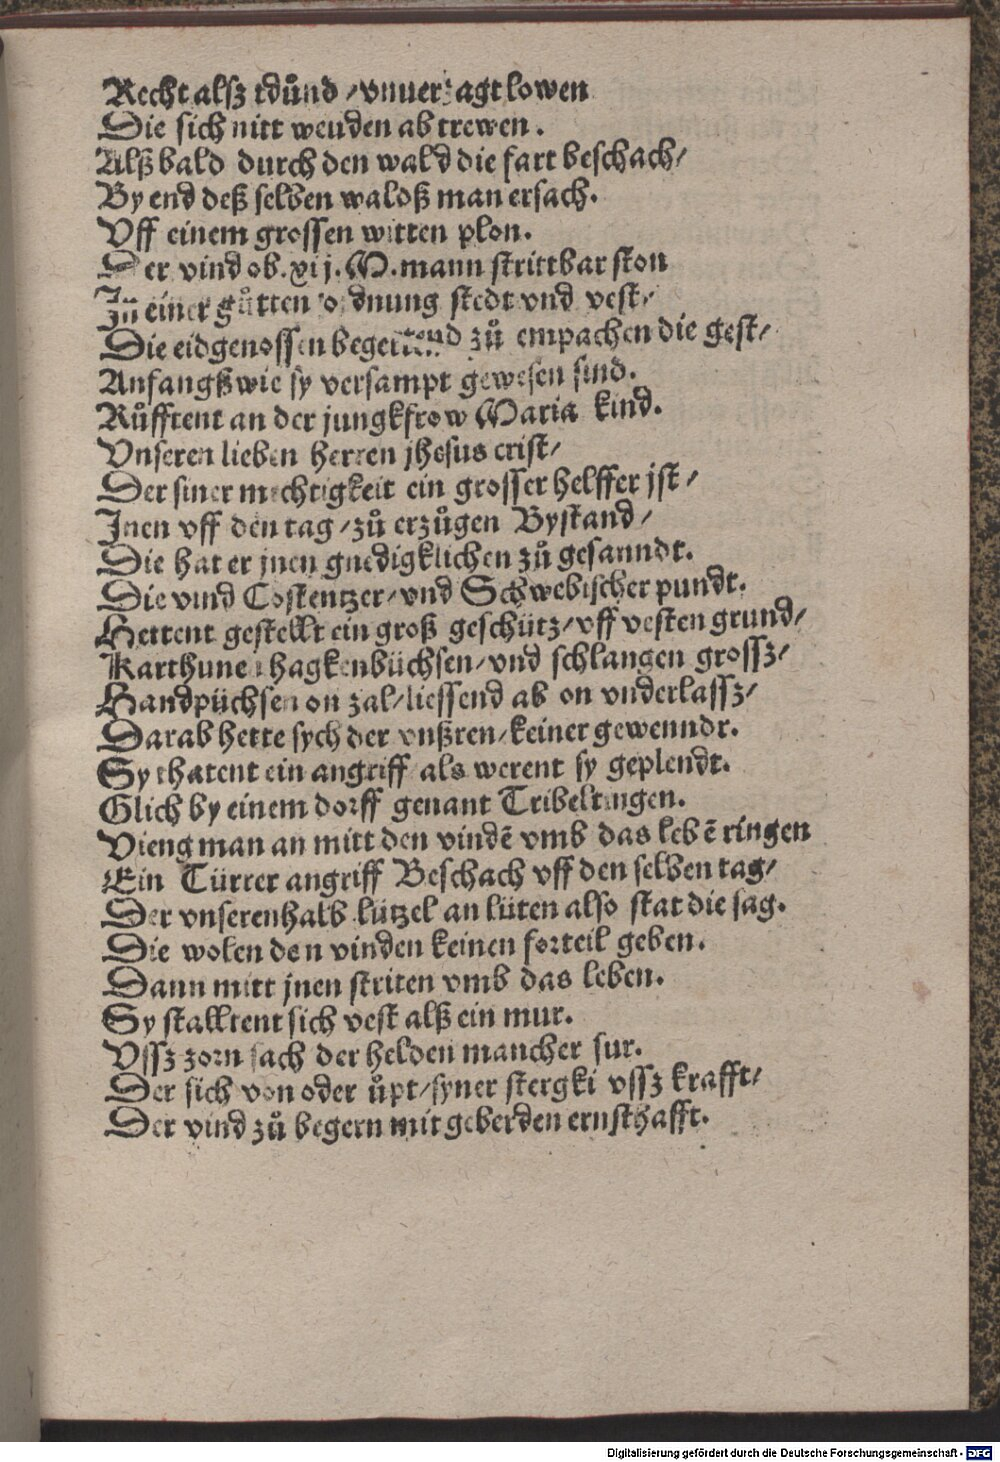 Recht alsz tduͦnd / vnuerzagt lowen
Die sich nitt wenden ab trewen.
Alß bald durch den wald die fart beschach/
By end deß selben waldß man ersach.
Vff einem grossen witten plon.
Der vind ob .xij. M. mann strittbar ston
In einer guͦtten ordnung stedt vnd vest/
Die eidgenossen begertend zuͦ empachen die gest/
Anfangß wie sy versampt gewesen sind.
Ruͦfftent an der jungkfrow Maria kind.
Vnseren lieben herren jhesus crist/
Der siner mechtigkeit ein grosser helffer jst/
Jnen vff den tag/zuͦ erzuͦgen Bystand/
Die hat er jnen gnedigklichen zuͦ gesanndt.
Die vind Costentzer/vnd Schwebischer pundt.
Hettent gestellt ein groß geschütz/vff vesten grund/
Karthunen hagkenbüchsen/vnd schlangen grossz/
Handpüchsen on zal/liessend ab on vnderlassz/
Darab hette sych der vnßren/keiner gewenndt.
Sy thatent ein angriff als werent sy geplendt.
Glich by einem dorff genant Tribeltingen.
Vieng man an mitt den vindē vmb das lebē ringen
Ein Türrer angriff Beschach vff den selben tag/
Der vnserenhalb lützel an lüten also stat die sag.
Die wolen den vinden keinen forteil geben.
Dann mitt jnen striten vmb das leben.
Sy stalltent sich vest alß ein mur.
Vssz zorn sach der helden mancher sur.
Der sich von oder uͦpt/syner stergki vssz krafft/
Der vind zuͦ begern mit geberden ernsthafft.
Digitalisierung gefördert durch die Deutsche Forschungsgemeinschaft - DFG